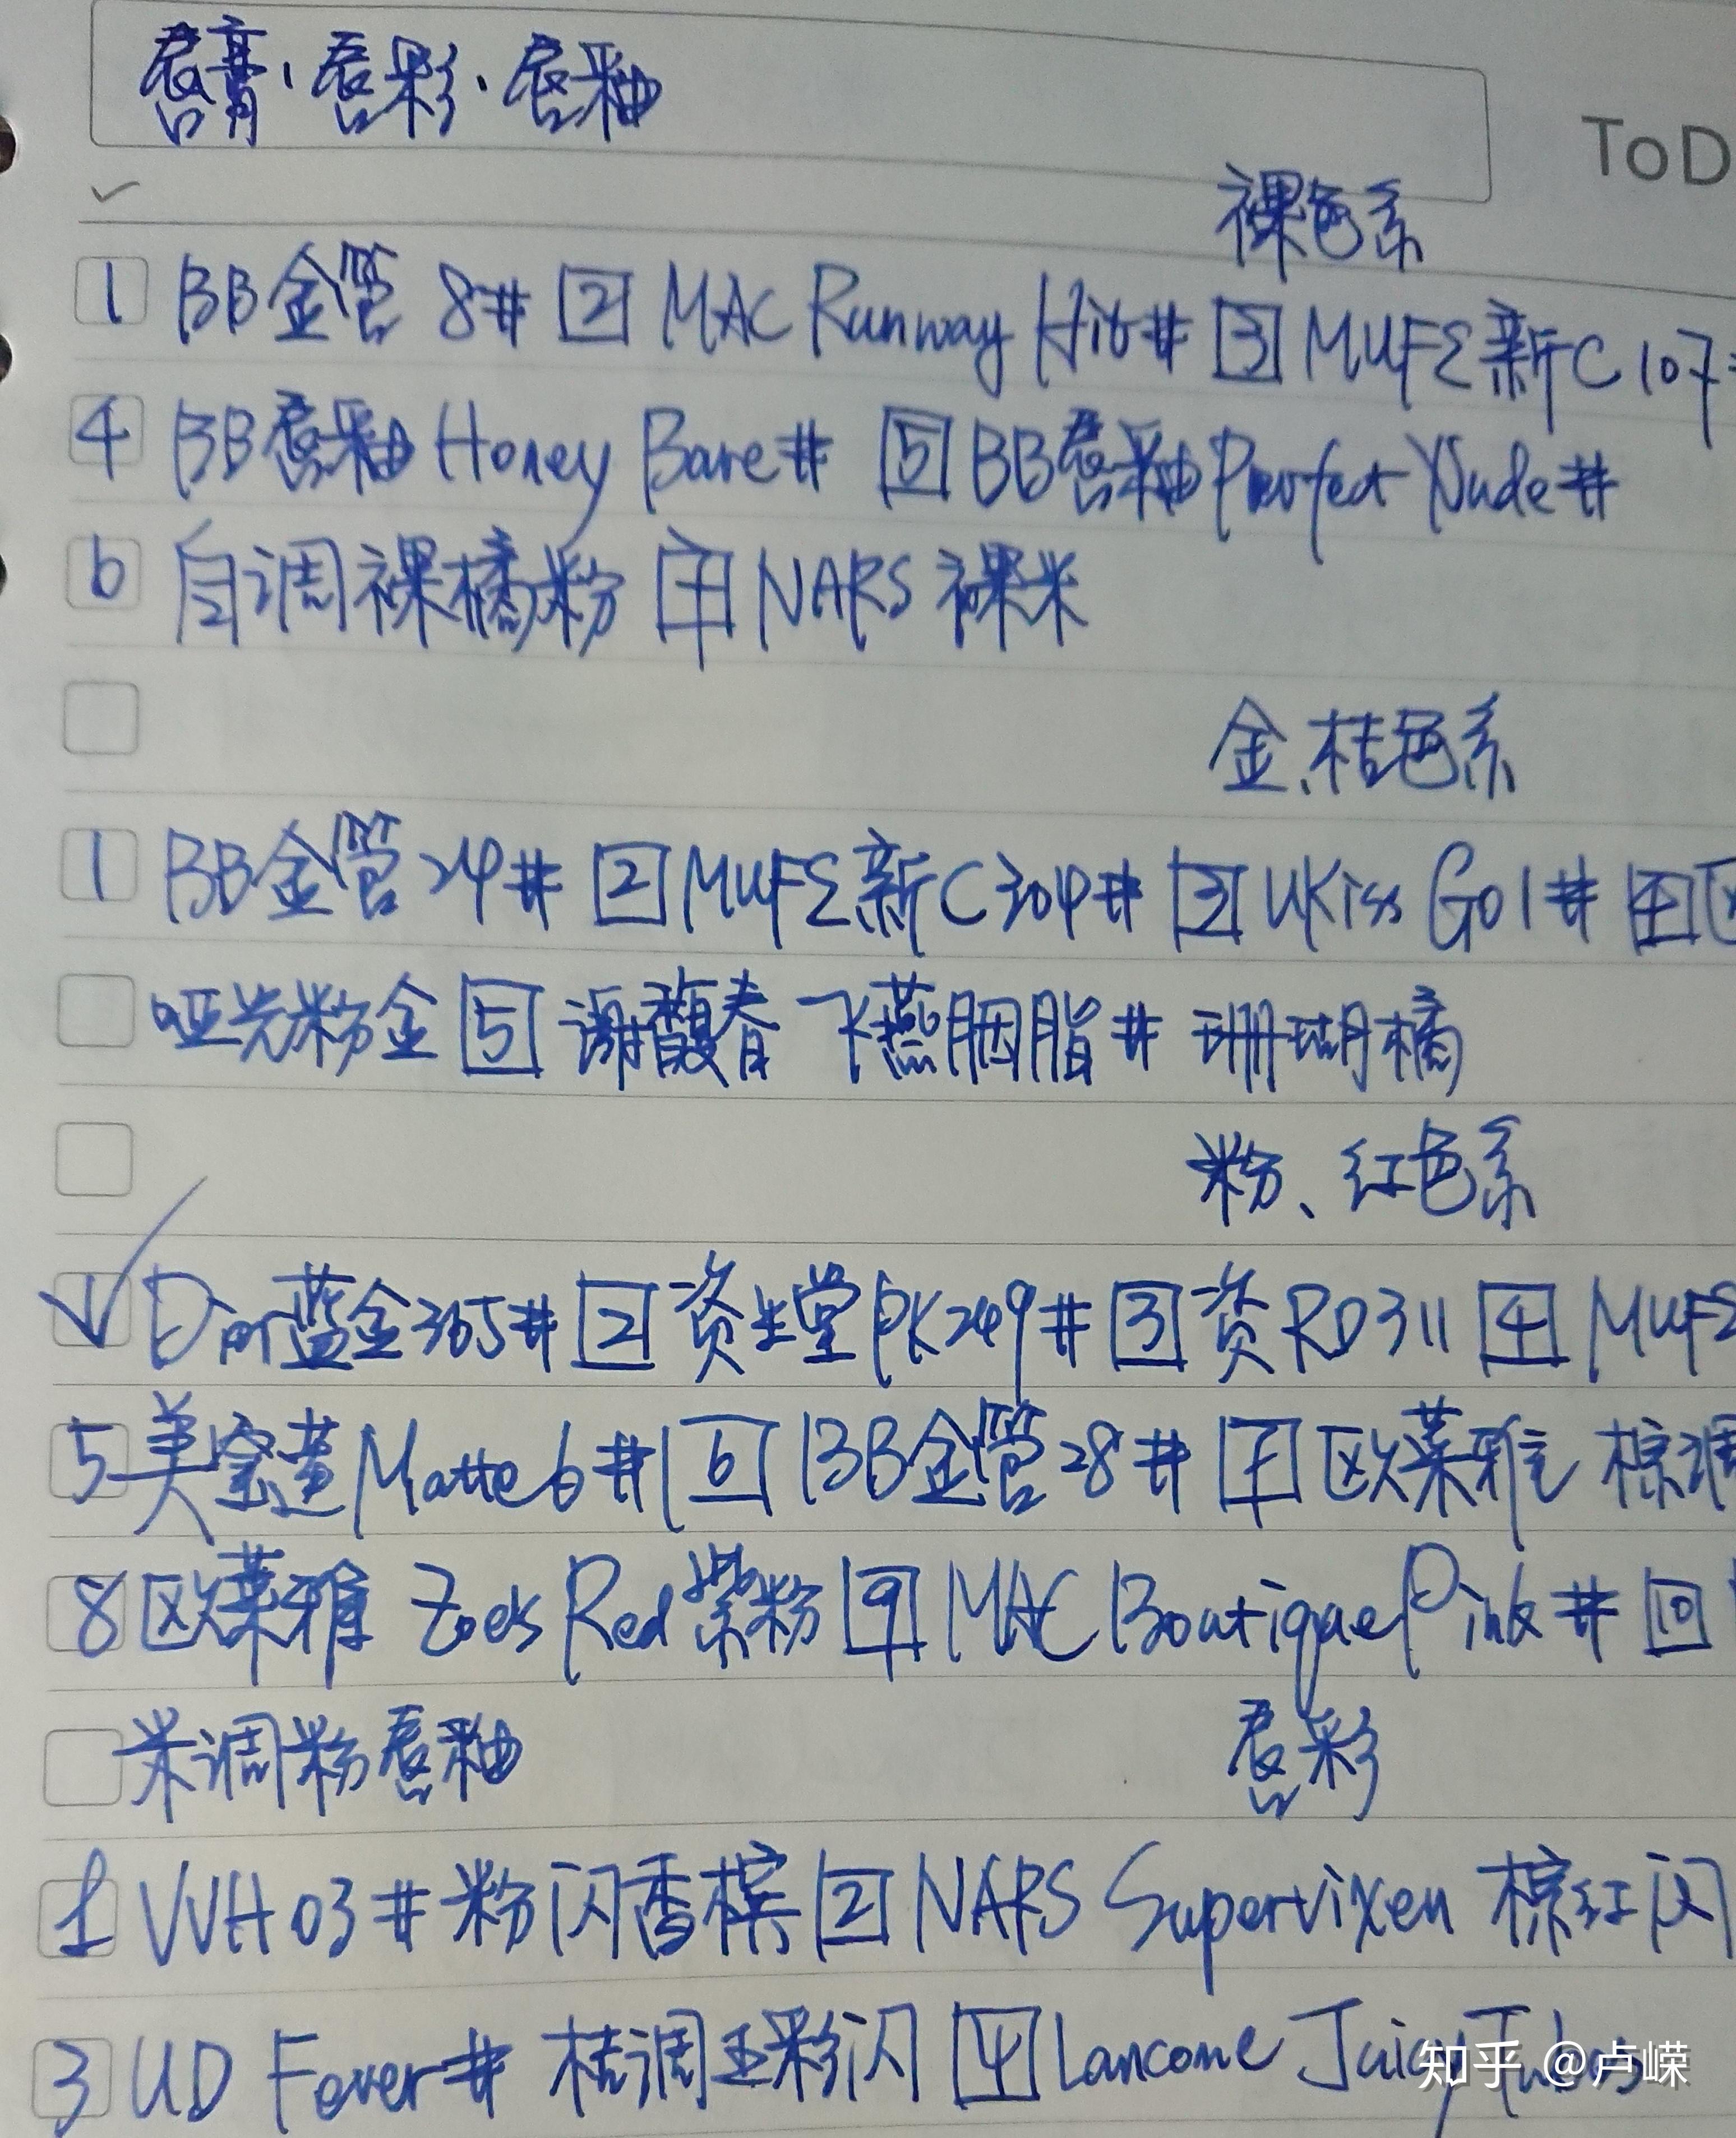 唇膏、唇彩、唇釉
ToD
裸色系
1 BB金管 8# 2 MAC Runway Hit# 3 MUFE新C107
4 BB唇釉 Honey Bare# 5 BB唇釉 Perfect Nude#
6 自调裸橘粉 7 NARS 裸米
金、桔色系
1 BB金管24# 2 MUFE新C304# 3 UKiss G01# 4
哑光粉金 5 谢馥春 飞燕胭脂# 珊瑚橘
粉、红色系
Dior蓝金365# 2 资生堂PK249# 3 资RD311 4 MUFE
5 美宝莲Matte6# 6 BB金管28# 7 欧莱雅 棕调
8 欧莱雅 Zoe's Red紫粉 9 MAC Boutique Pink# 10
米调粉唇釉
唇彩
1 VVH03#粉闪香槟 2 NARS Supervixen 棕红闪
3 UD Fever# 桔调玉彩闪 4 Lancome Juicy Tubes
知乎 @卢嵘